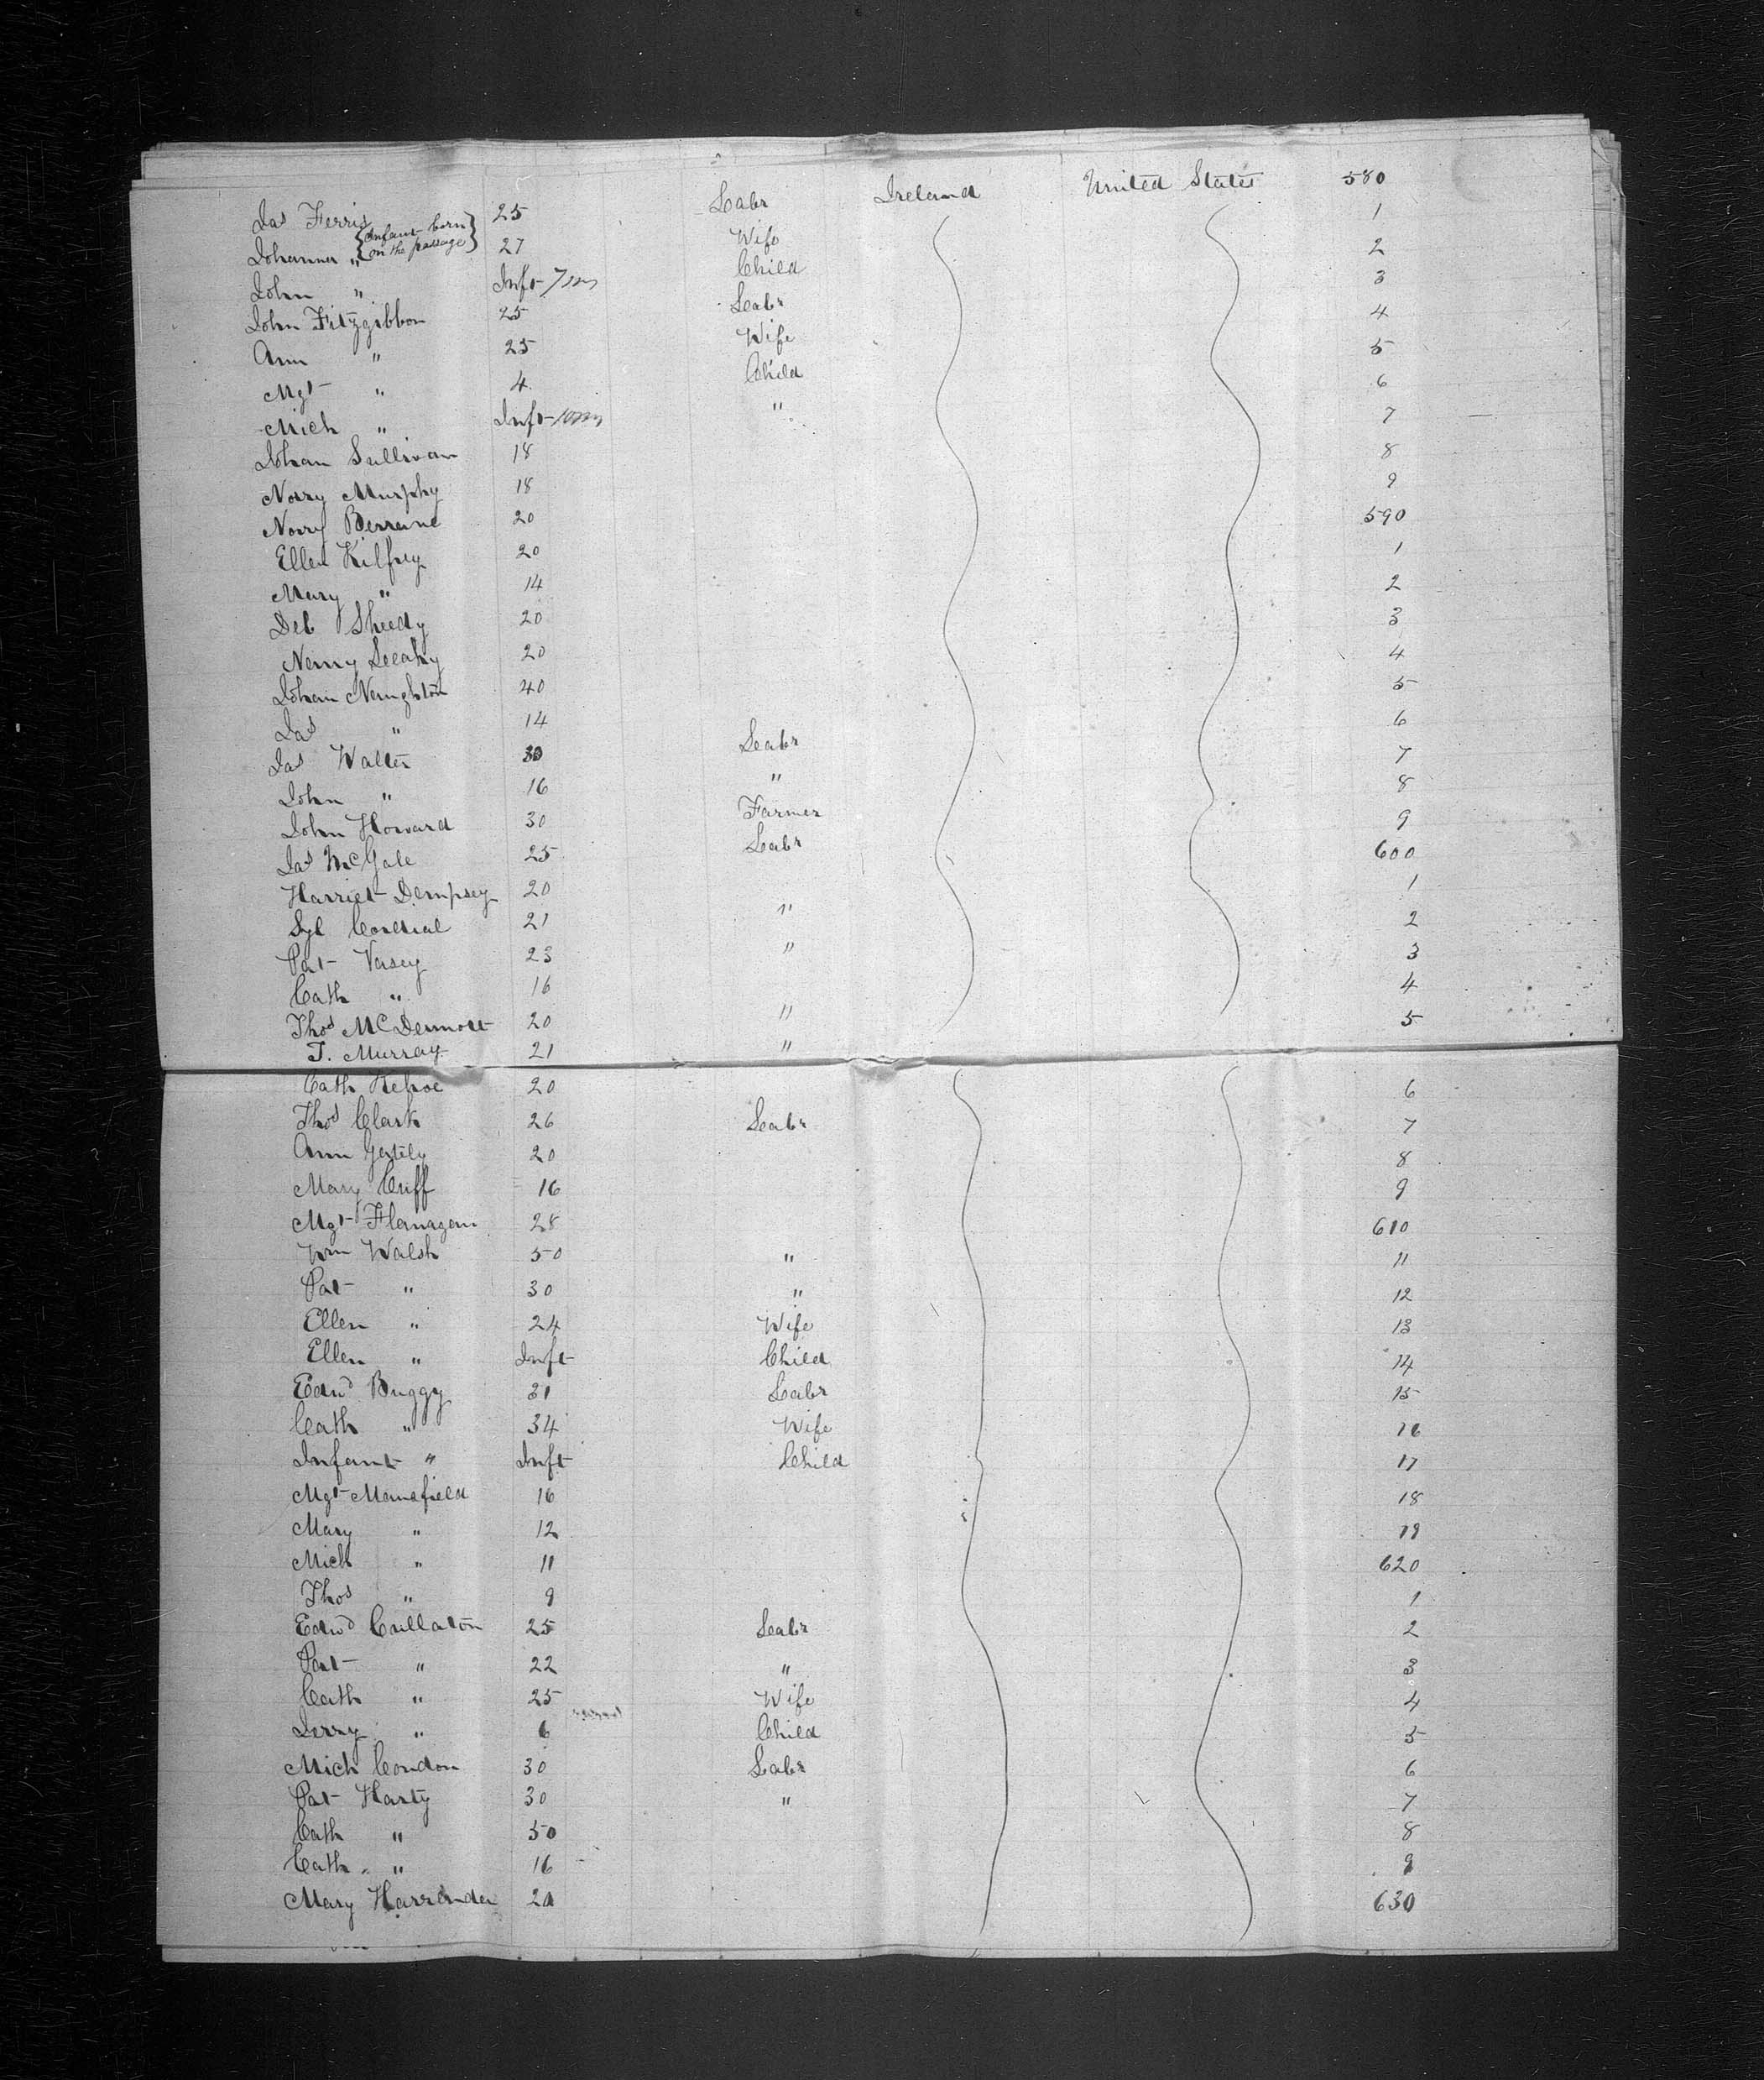 Jas Ferris 25 Labr Ireland United States 580
Johanna " {Infant born on the passage} 27 Wife 1
John " Inft 7m Child 2
John Fitzgibbon 25 Labr 3
Ann " 25 Wife 4
Mgt " 4 Child 5
Mich " Inft 10m " 6
Johan Sullivan 18 7
Nory Murphy 18 8
Nory 20 9
Ellen Kilfrey 20 590
Mary " 14 1
Deb Sheedy 20 2
Leeahy 20 3
Johan Naughton 40 4
Jas " 14 5
Jas Walter 30 Labr 6
John " 16 " 7
John Howard 30 Farmer 8
Jas McGale 25 Labr 9
Harriet Dempsey 20 600
Syl 21 " 1
Pat Vasey 23 " 2
Cath " 16 3
Thos McDermott 20 " 4
T. Murray 21 " 5
Cath Kehoe 20 6
Thos Clark 26 Labr 7
Ann 20 8
Mary Cuff 16 9
Mgt Flanagan 28 610
Wm Walsh 50 " 11
Pat " 30 " 12
Ellen " 24 Wife 13
Ellen " Inft Child 14
Edwd Buggy 31 Labr 15
Cath " 34 Wife 16
Infant " Inft Child 17
Mgt Mansfield 16 18
Mary " 12 19
Mich " 11 620
Thos " 9 1
Edwd Cullaton 25 Labr 2
Pat " 22 " 3
Cath " 25 Wife 4
Jerry " 6 Child 5
Mich Condon 30 Labr 6
Pat Harty 30 " 7
Cath " 50 8
Cath " 16 9
Mary 20 630